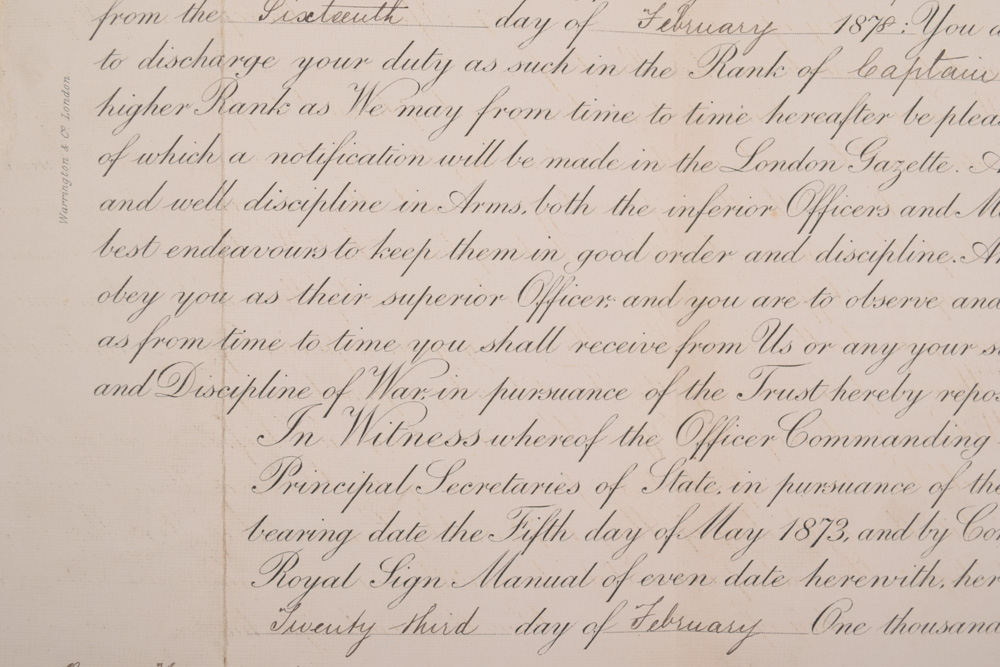 from the Sixteenth day of February 1878: You
to discharge your duty as such in the Rank of Captain
higher Rank as We may from time to time hereafter be
of which a notification will be made in the London Gazette.
and well discipline in Arms, both the inferior Officers and
best endeavours to keep them in good order and discipline.
obey you as their superior Officer; and you are to observe and
as from time to time you shall receive from Us or any your
and Discipline of War, in pursuance of the Trust hereby
In Witness whereof the Officer Commanding
Principal Secretaries of State, in pursuance of the
bearing date the Fifth day of May 1873, and by
Royal Sign Manual of even date herewith,
Twenty third day of February One thousand
Warrington & Co. London